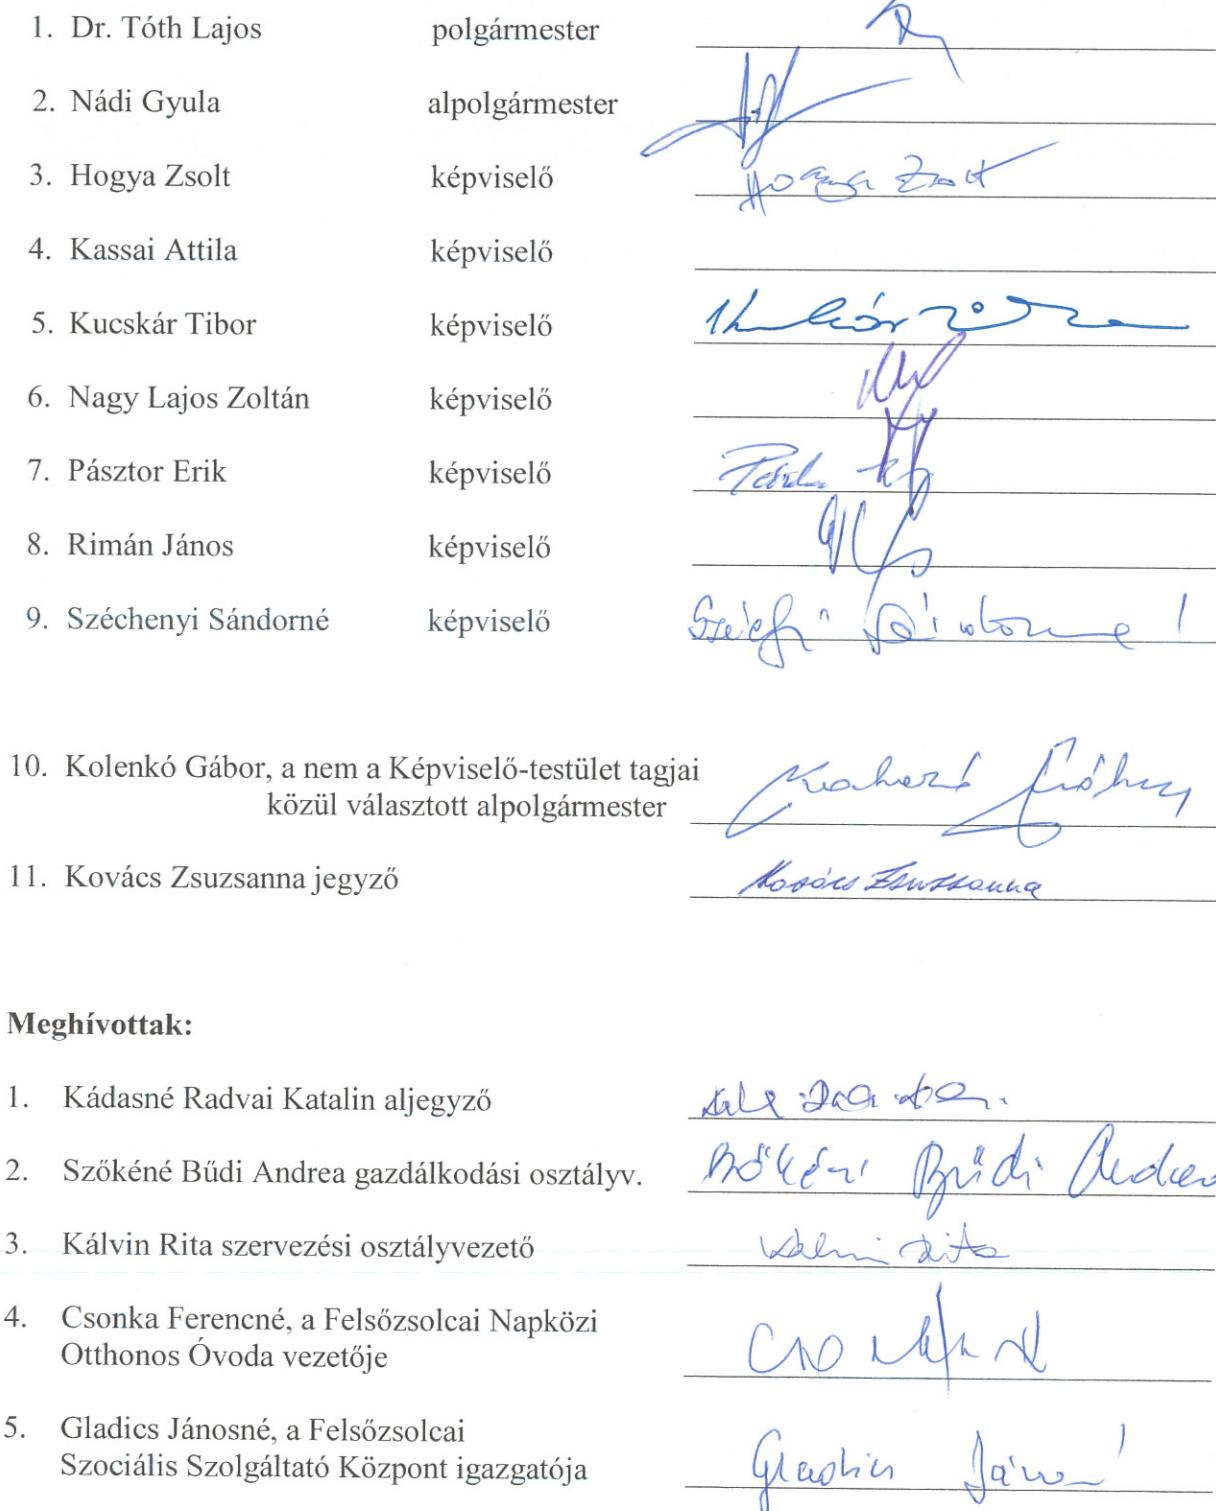 1. Dr. Tóth Lajos polgármester
2. Nádi Gyula alpolgármester
3. Hogya Zsolt képviselő Hogya Zsolt
4. Kassai Attila képviselő
5. Kucskár Tibor képviselő
6. Nagy Lajos Zoltán képviselő
7. Pásztor Erik képviselő
8. Rimán János képviselő
9. Széchenyi Sándorné képviselő
10. Kolenkó Gábor, a nem a Képviselő-testület tagjai
közül választott alpolgármester
11. Kovács Zsuzsanna jegyző Kovács Zsuzsanna
Meghívottak:
1. Kádasné Radvai Katalin aljegyző
2. Szőkéné Bűdi Andrea gazdálkodási osztályv. Bűdi Andrea
3. Kálvin Rita szervezési osztályvezető Kálvin Rita
4. Csonka Ferencné, a Felsőzsolcai Napközi
Otthonos Óvoda vezetője
5. Gladics Jánosné, a Felsőzsolcai
Szociális Szolgáltató Központ igazgatója Gladics